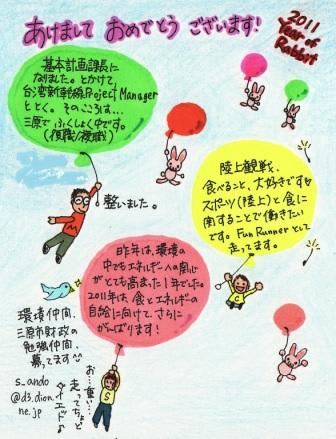 あけまして おめでとう ございます!
2011
Year of
Rabbit
基本計画課長に
なりました。とかけて、
台湾新幹線Project Manager
ととく。そのこころは…
三原で ふくしょく中です。
(復職/複職)
整いました。
陸上観戦、
食べること、大好きです
スポーツ(陸上)と食に
関することで働きたい
です。Fun Runnerとして
走ってます。
昨年は、環境の
中でもエネルギーへの関心
がとても高まった1年でした。
2011年は、食とエネルギーの
自給に向けて、さらに
がんばります!
環境仲間、
三原市財政の
勉強仲間、
募ってます
s_ando
@d3.dion.
ne.jp
お…重い…
走ってちょと
ダイエット
M
C
S